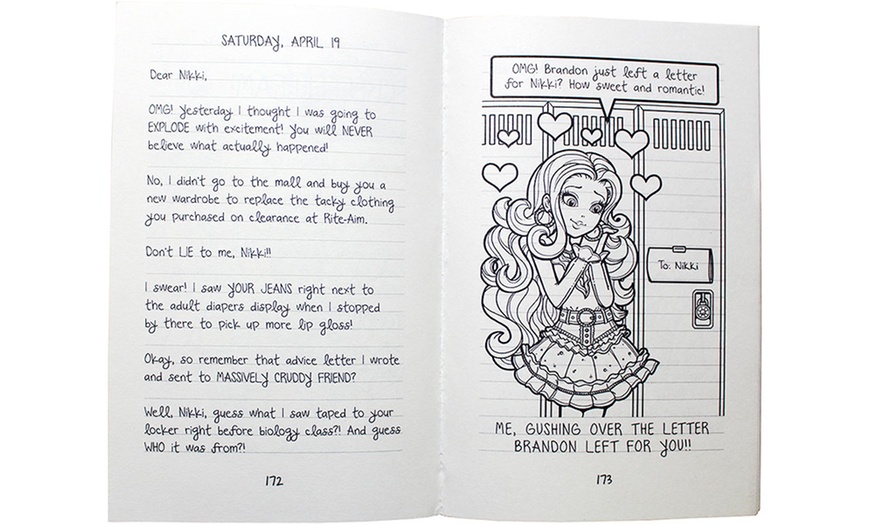 SATURDAY, APRIL 19
Dear Nikki,
OMG! Yesterday I thought I was going to
EXPLODE with excitement! You will NEVER
believe what actually happened!
No, I didn't go to the mall and buy you a
new wardrobe to replace the tacky clothing
you purchased on clearance at Rite-Aim.
Don't LIE to me, Nikki!!
I swear! I saw YOUR JEANS right next to
the adult diapers display when I stopped
by there to pick up more lip gloss!
Okay, so remember that advice letter I wrote
and sent to MASSIVELY CRUDDY FRIEND?
Well, Nikki, guess what I saw taped to your
locker right before biology class?! And guess
WHO it was from?!
172
OMG! Brandon just left a letter
for Nikki? How sweet and romantic!
To: Nikki
ME, GUSHING OVER THE LETTER
BRANDON LEFT FOR YOU!!
173